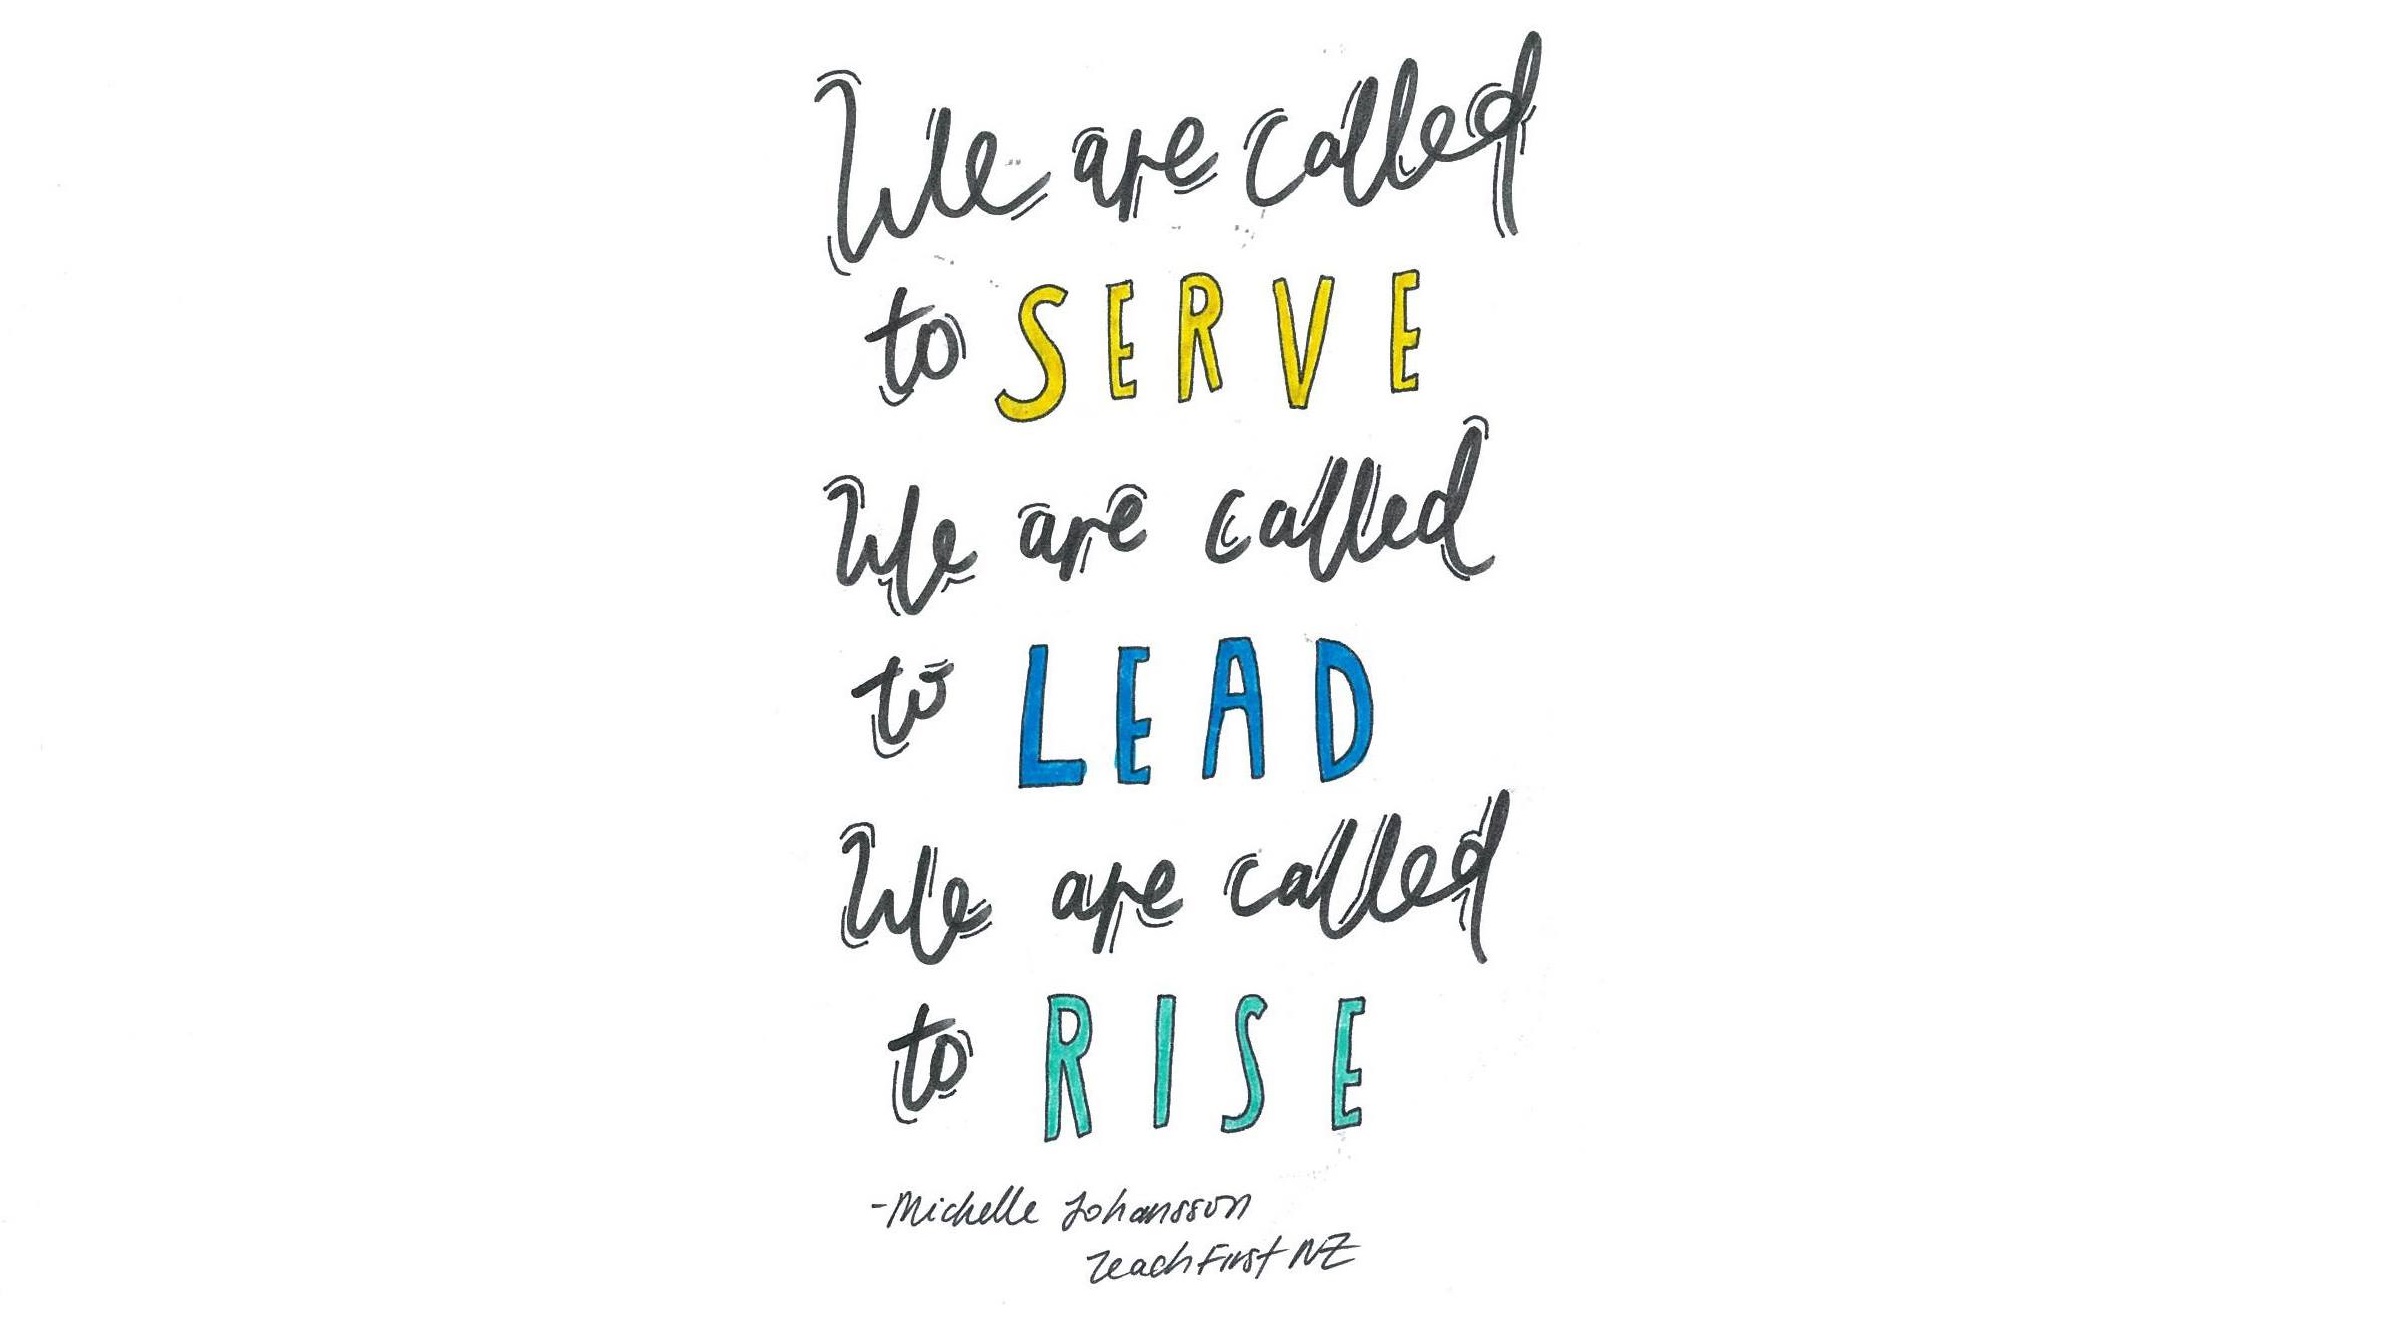 We are called
to SERVE
We are called
to LEAD
We are called
to RISE
-Michelle Johansson
Teach First NZ